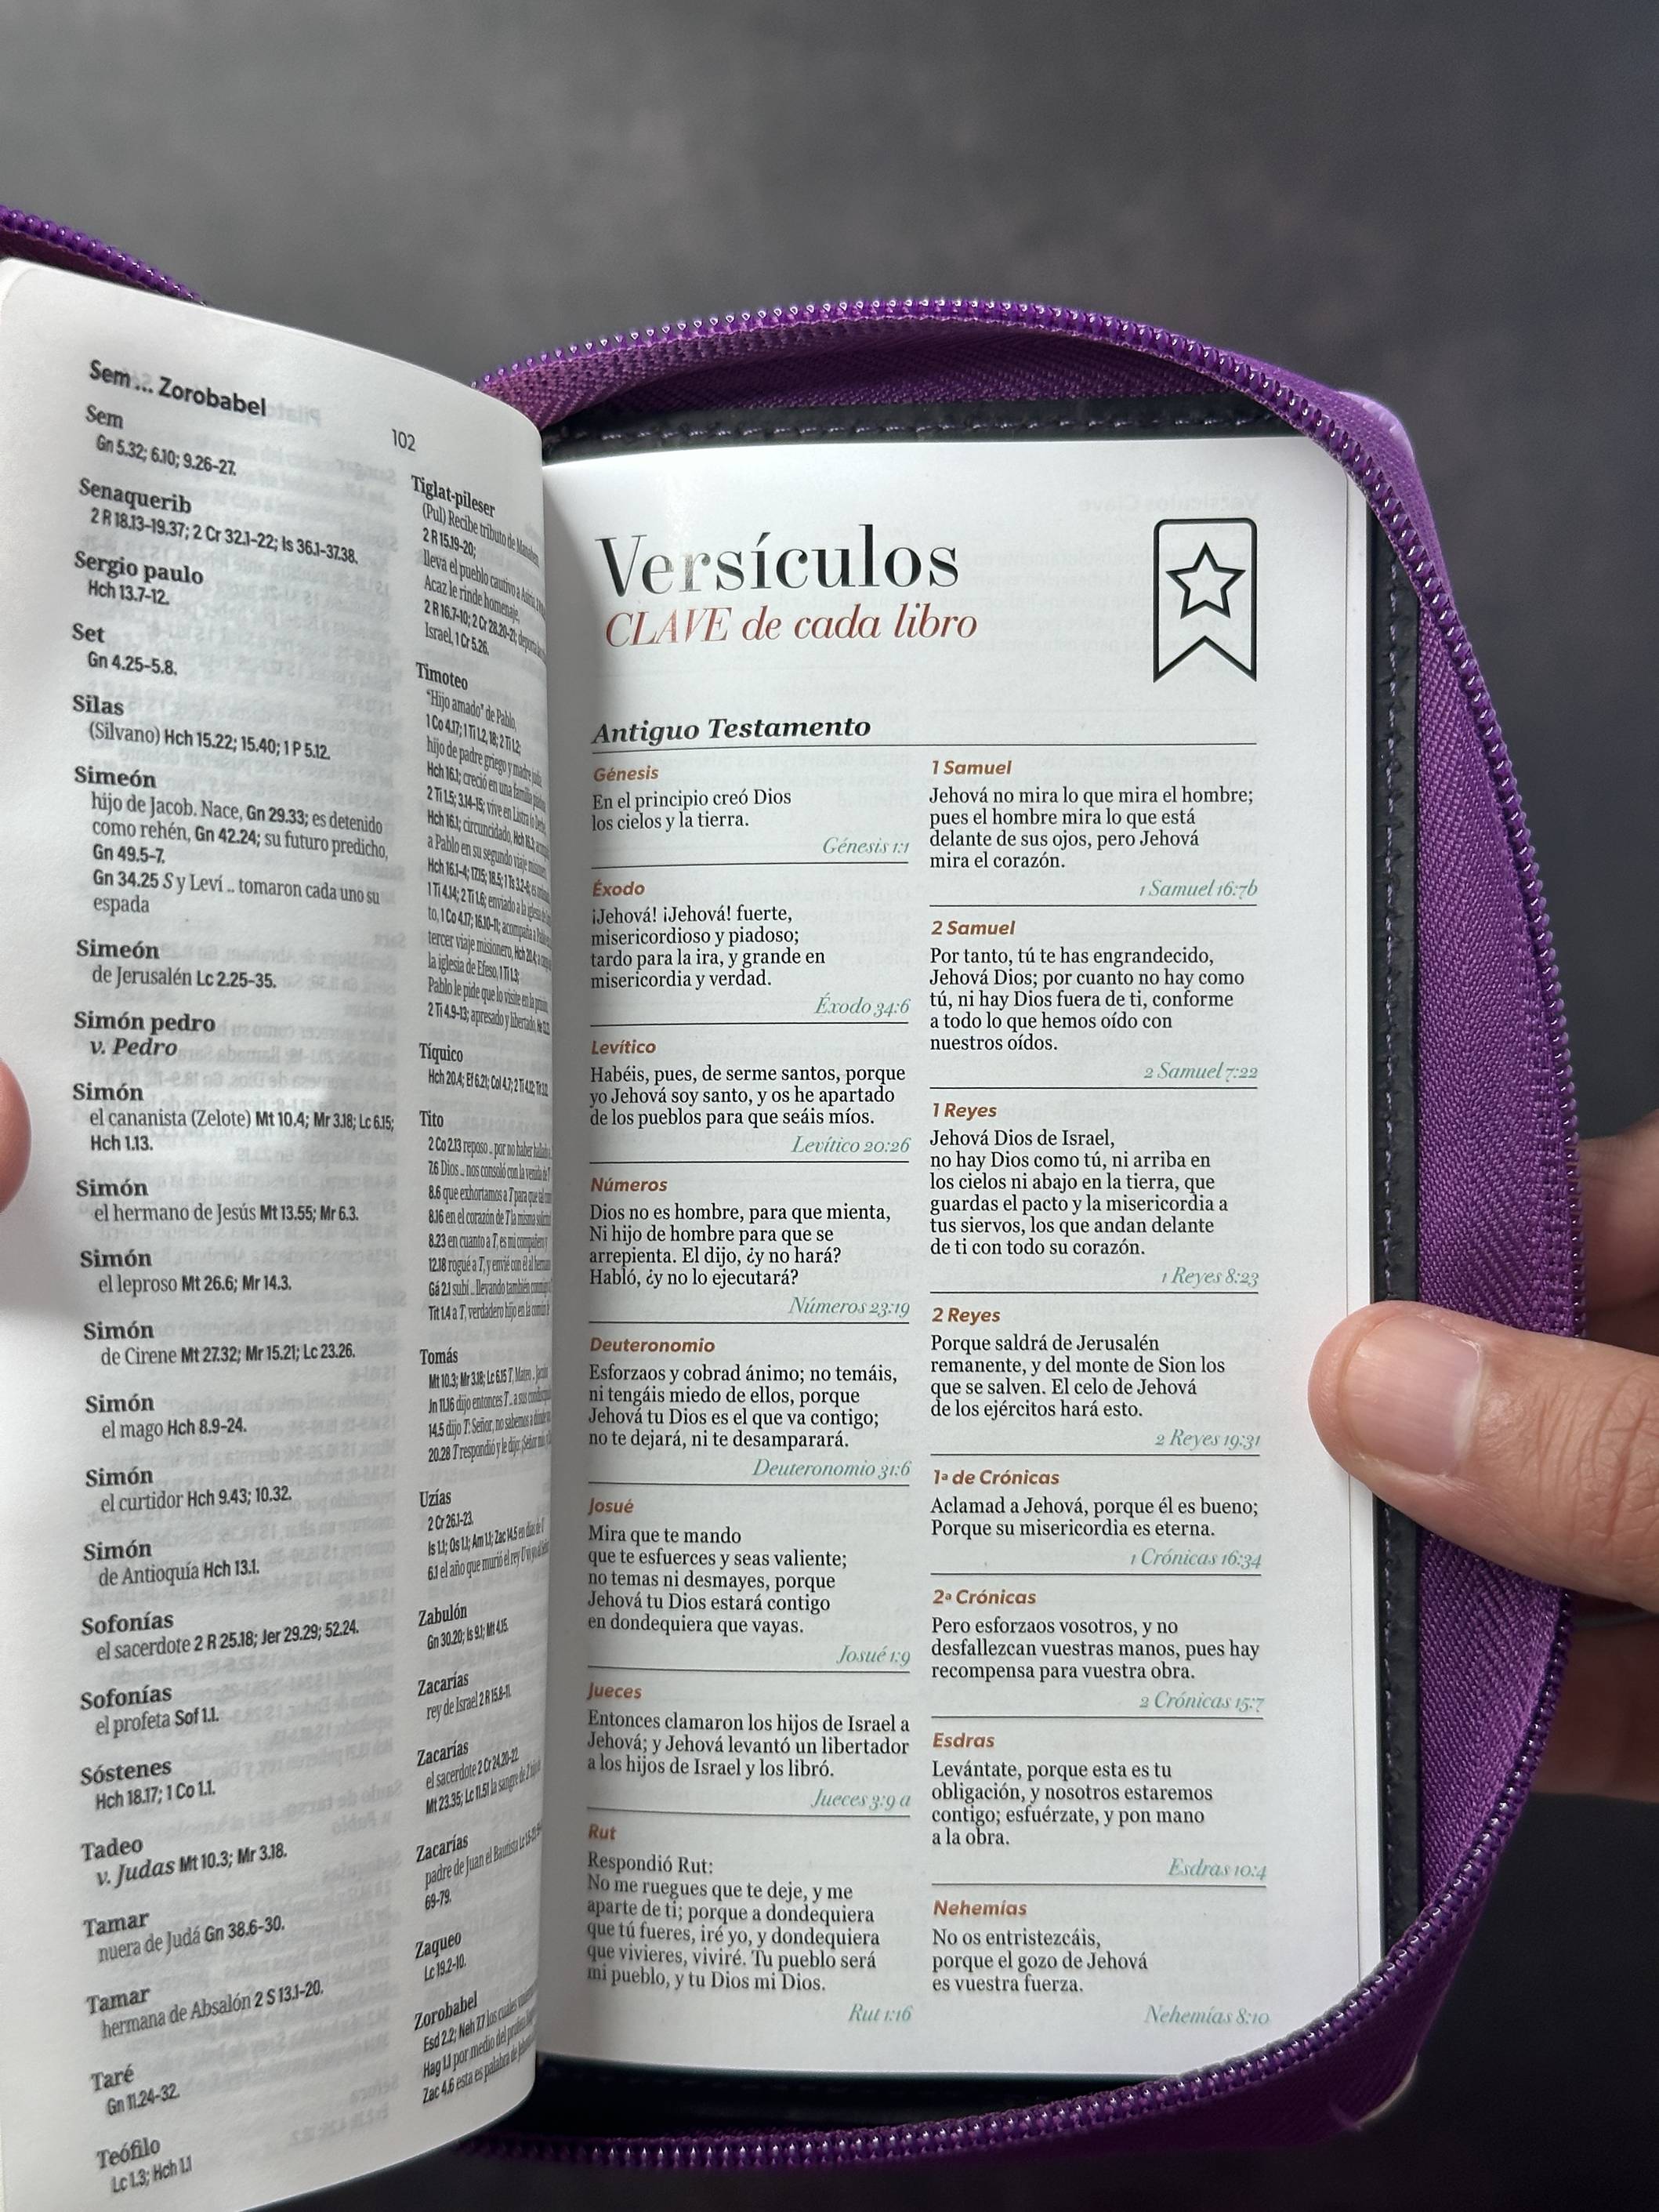 Sem ... Zorobabel
102
Sem
Gn 5.32; 6.10; 9.26-27.
Senaquerib
2 R 18.13-19.37; 2 Cr 32.1-22; Is 36.1-37.38.
Sergio paulo
Hch 13.7-12.
Set
Gn 4.25-5.8.
Silas
(Silvano) Hch 15.22; 15.40; 1 P 5.12.
Simeón
hijo de Jacob. Nace, Gn 29.33; es detenido
como rehén, Gn 42.24; su futuro predicho,
Gn 49.5-7.
Gn 34.25 S y Leví .. tomaron cada uno su
espada
Simeón
de Jerusalén Lc 2.25-35.
Simón pedro
v. Pedro
Simón
el cananista (Zelote) Mt 10.4; Mr 3.18; Lc 6.15;
Hch 1.13.
Simón
el hermano de Jesús Mt 13.55; Mr 6.3.
Simón
el leproso Mt 26.6; Mr 14.3.
Simón
de Cirene Mt 27.32; Mr 15.21; Lc 23.26.
Simón
el mago Hch 8.9-24.
Simón
el curtidor Hch 9.43; 10.32.
Simón
de Antioquía Hch 13.1.
Sofonías
el sacerdote 2 R 25.18; Jer 29.29; 52.24.
Sofonías
el profeta Sof 1.1.
Sóstenes
Hch 18.17; 1 Co 1.1.
Tadeo
v. Judas Mt 10.3; Mr 3.18.
Tamar
nuera de Judá Gn 38.6-30.
Tamar
hermana de Absalón 2 S 13.1-20.
Taré
Gn 11.24-32.
Teófilo
Lc 1.3; Hch 1.1
Tiglat-pileser
(Pul) Recibe tributo de
2 R 15.19-20;
lleva el pueblo cautivo a
Acaz le rinde homenaje,
2 R 16.7-10; 2 Cr 28.20-21;
Israel, 1 Cr 5.26.
Timoteo
"Hijo amado" de Pablo,
1 Co 4.17; 1 Ti 1.2, 18; 2 Ti 1.2;
hijo de padre griego y madre
Hch 16.1; creció en una familia
2 Ti 1.5; 3.14-15; vive en Listra
Hch 16.1; circuncidado,
a Pablo en su segundo viaje
Hch 16.1-4; 17.15; 18.5;
1 Ti 4.14; 2 Ti 1.6; enviado a la iglesia
to, 1 Co 4.17; 16.10-11; acompaña a
tercer viaje misionero,
la iglesia de Efeso, 1 Ti 1.3;
Pablo le pide que lo visite en la
2 Ti 4.9-13; apresado y libertado,
Tíquico
Hch 20.4; Ef 6.21; Col 4.7; 2 Ti 4.12;
Tito
2 Co 2.13 reposo .. por no haber
7.6 Dios .. nos consoló con la venida de T
8.6 que exhortamos a T para que
8.16 en el corazón de T la misma
8.23 en cuanto a T, es mi compañero
12.18 rogué a T, y envié con él al
Gá 2.1 subí .. llevando también
Tit 1.4 a T, verdadero hijo en la
Tomás
Mt 10.3; Mr 3.18; Lc 6.15 T, Mateo
Jn 11.16 dijo entonces T .. a sus
14.5 dijo T: Señor, no sabemos a dónde
20.28 T respondió y le dijo: ¡Señor
Uzías
2 Cr 26.1-23.
Is 1.1; Os 1.1; Am 1.1; Zac 14.5 en días de
6.1 el año que murió el rey U
Zabulón
Gn 30.20; Is 9.1; Mt 4.15.
Zacarías
rey de Israel 2 R 15.8-11.
Zacarías
el sacerdote 2 Cr 24.20-22.
Mt 23.35; Lc 11.51 la sangre de
Zacarías
padre de Juan el Bautista
69-79.
Zaqueo
Lc 19.2-10.
Zorobabel
Esd 2.2; Neh 7.7 los cuales
Hag 1.1 por medio del
Zac 4.6 esta es palabra de
Versículos
CLAVE de cada libro
Antiguo Testamento
Génesis
En el principio creó Dios
los cielos y la tierra.
Génesis 1:1
Éxodo
¡Jehová! ¡Jehová! fuerte,
misericordioso y piadoso;
tardo para la ira, y grande en
misericordia y verdad.
Éxodo 34:6
Levítico
Habéis, pues, de serme santos, porque
yo Jehová soy santo, y os he apartado
de los pueblos para que seáis míos.
Levítico 20:26
Números
Dios no es hombre, para que mienta,
Ni hijo de hombre para que se
arrepienta. El dijo, ¿y no hará?
Habló, ¿y no lo ejecutará?
Números 23:19
Deuteronomio
Esforzaos y cobrad ánimo; no temáis,
ni tengáis miedo de ellos, porque
Jehová tu Dios es el que va contigo;
no te dejará, ni te desamparará.
Deuteronomio 31:6
Josué
Mira que te mando
que te esfuerces y seas valiente;
no temas ni desmayes, porque
Jehová tu Dios estará contigo
en dondequiera que vayas.
Josué 1:9
Jueces
Entonces clamaron los hijos de Israel a
Jehová; y Jehová levantó un libertador
a los hijos de Israel y los libró.
Jueces 3:9 a
Rut
Respondió Rut:
No me ruegues que te deje, y me
aparte de ti; porque a dondequiera
que tú fueres, iré yo, y dondequiera
que vivieres, viviré. Tu pueblo será
mi pueblo, y tu Dios mi Dios.
Rut 1:16
1 Samuel
Jehová no mira lo que mira el hombre;
pues el hombre mira lo que está
delante de sus ojos, pero Jehová
mira el corazón.
1 Samuel 16:7b
2 Samuel
Por tanto, tú te has engrandecido,
Jehová Dios; por cuanto no hay como
tú, ni hay Dios fuera de ti, conforme
a todo lo que hemos oído con
nuestros oídos.
2 Samuel 7:22
1 Reyes
Jehová Dios de Israel,
no hay Dios como tú, ni arriba en
los cielos ni abajo en la tierra, que
guardas el pacto y la misericordia a
tus siervos, los que andan delante
de ti con todo su corazón.
1 Reyes 8:23
2 Reyes
Porque saldrá de Jerusalén
remanente, y del monte de Sion los
que se salven. El celo de Jehová
de los ejércitos hará esto.
2 Reyes 19:31
1ª de Crónicas
Aclamad a Jehová, porque él es bueno;
Porque su misericordia es eterna.
1 Crónicas 16:34
2ª Crónicas
Pero esforzaos vosotros, y no
desfallezcan vuestras manos, pues hay
recompensa para vuestra obra.
2 Crónicas 15:7
Esdras
Levántate, porque esta es tu
obligación, y nosotros estaremos
contigo; esfuérzate, y pon mano
a la obra.
Esdras 10:4
Nehemías
No os entristezcáis,
porque el gozo de Jehová
es vuestra fuerza.
Nehemías 8:10